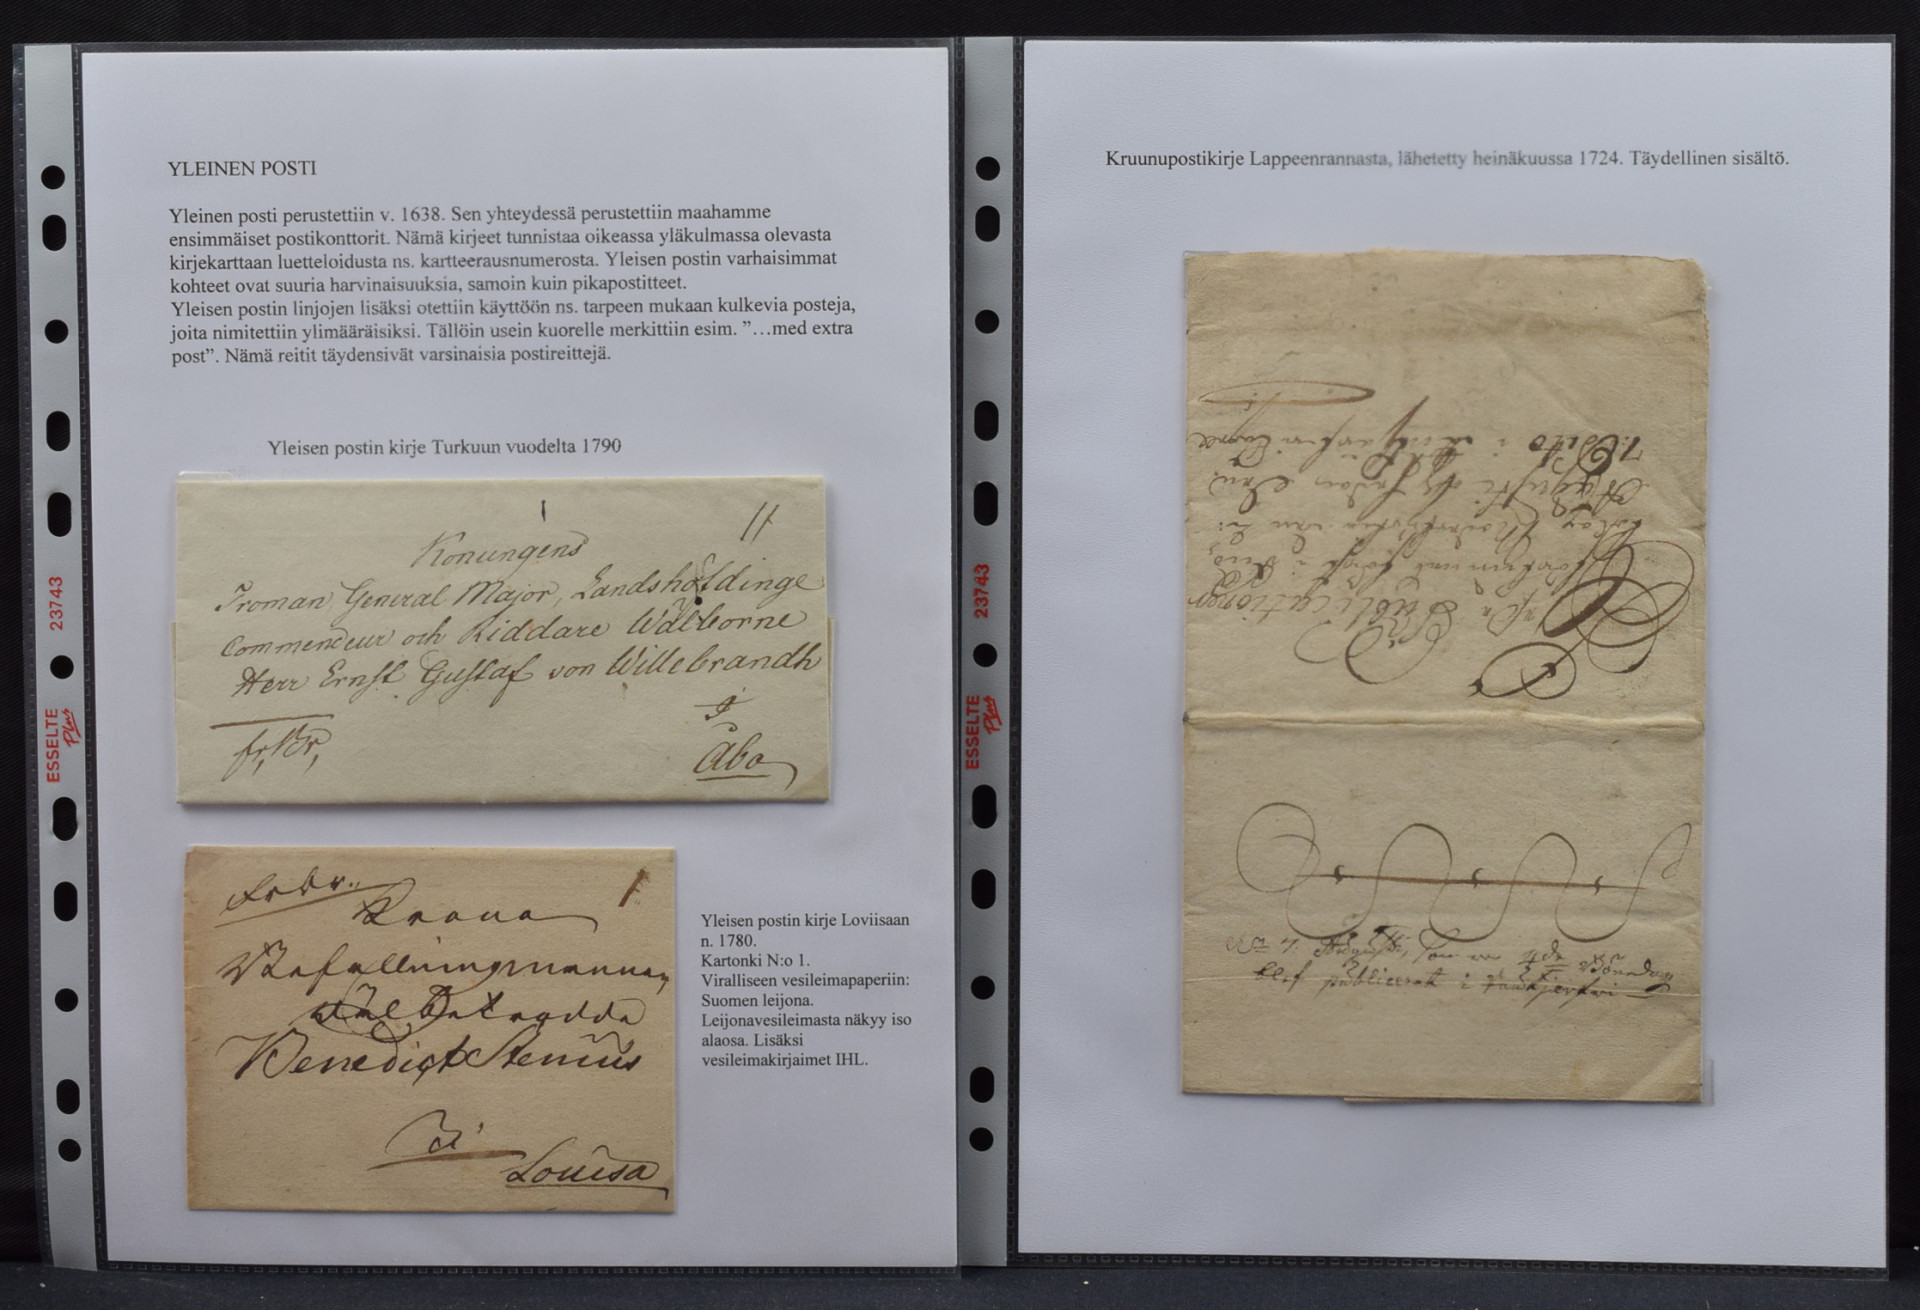 YLEINEN POSTI
Yleinen posti perustettiin v. 1638. Sen yhteydessä perustettiin maahamme
ensimmäiset postikonttorit. Nämä kirjeet tunnistaa oikeassa yläkulmassa olevasta
kirjekarttaan luetteloidusta ns. kartteerausnumerosta. Yleisen postin varhaisimmat
kohteet ovat suuria harvinaisuuksia, samoin kuin pikapostitteet.
Yleisen postin linjojen lisäksi otettiin käyttöön ns. tarpeen mukaan kulkevia posteja,
joita nimitettiin ylimääräisiksi. Tällöin usein kuorelle merkittiin esim. ”…med extra
post”. Nämä reitit täydensivät varsinaisia postireittejä.
Yleisen postin kirje Turkuun vuodelta 1790
11
Konungens
Troman General Major, Landshöfdinge
Commendeur och Riddare Wälborne
Herr Ernst Gustaf von Willebrandh
fr, Br,
Åbo
frbr.
1
Krono
Befallningsmannen
Wälbetrodde
Benedict Stenius
Louisa
Yleisen postin kirje Loviisaan
n. 1780.
Kartonki N:o 1.
Viralliseen vesileimapaperiin:
Suomen leijona.
Leijonavesileimasta näkyy iso
alaosa. Lisäksi
vesileimakirjaimet IHL.
ESSELTE Plus 23743
Kruunupostikirje Lappeenrannasta, lähetetty heinäkuussa 1724. Täydellinen sisältö.
Publicationer
blef publicerat i
ESSELTE Plus 23743